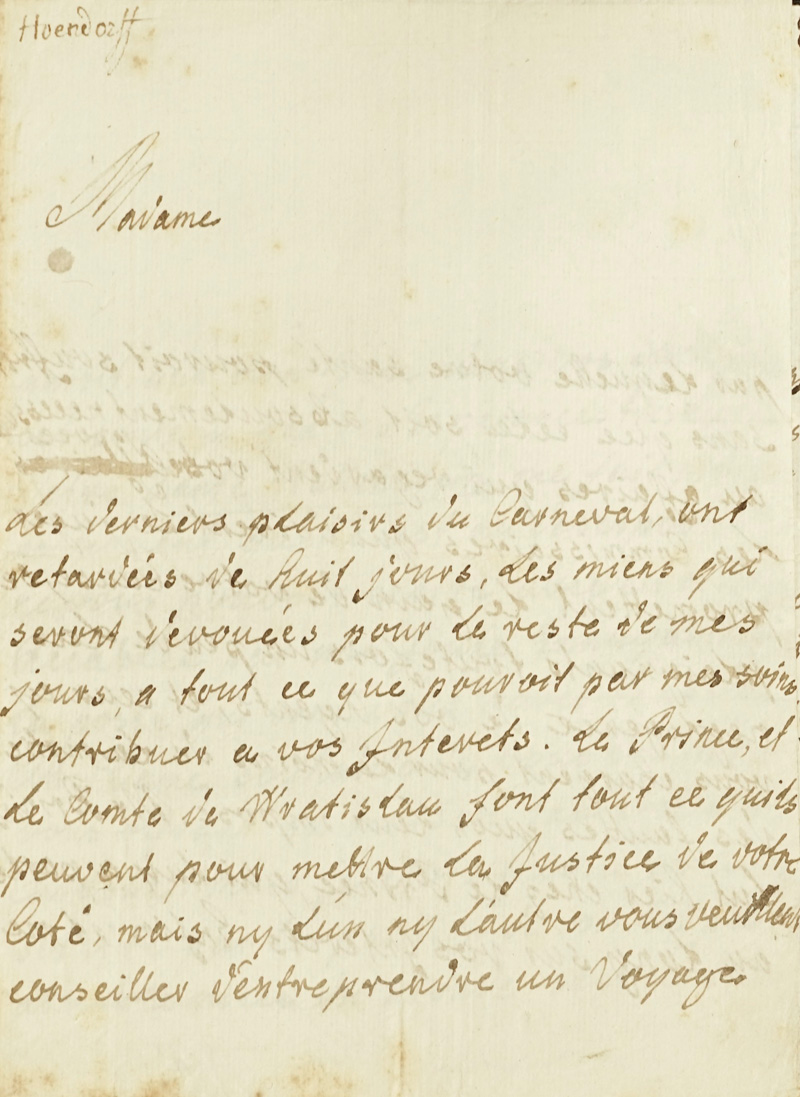 Hoendorff
Madame
Les derniers plaisirs du Carneval, ont
retardées de huit jours, les miens qui
seront devouées pour le reste de mes
jours, a tout ce que pouroit par mes soins
contribuer a vos Interets. Le Prince, et
le Comte de Wratislau font tout ce quils
peuvent pour mettre la Justice de votre
Coté, mais ny l'un ny l'autre vous veuillent
conseiller d'entreprendre un Voyage